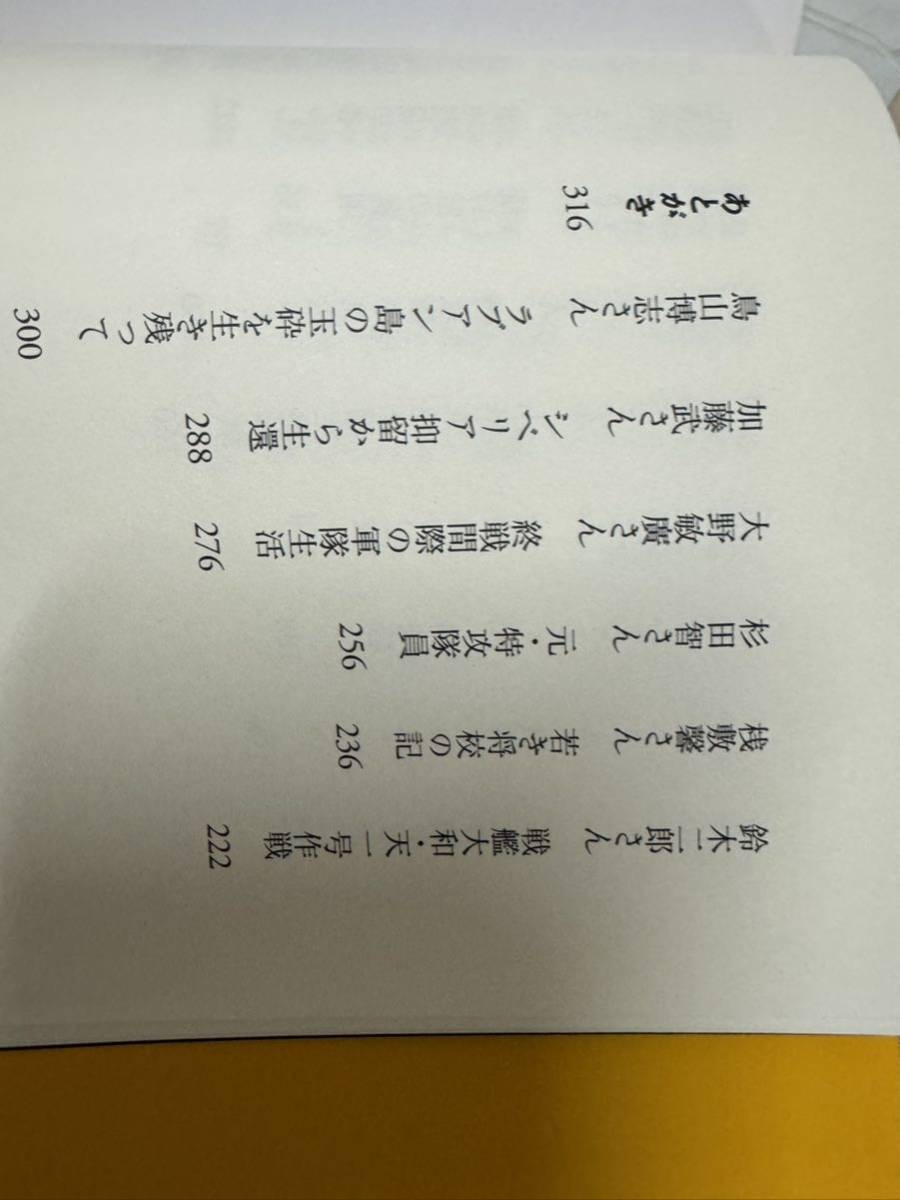 鈴木一郎さん　戦艦大和・天一号作戦　222
桟敷馨さん　若き将校の記　236
杉田智さん　元・特攻隊員　256
大野敏廣さん　終戦間際の軍隊生活　276
加藤武さん　シベリア抑留から生還　288
鳥山博志さん　ラブアン島の玉砕を生き残って　300
あとがき　316